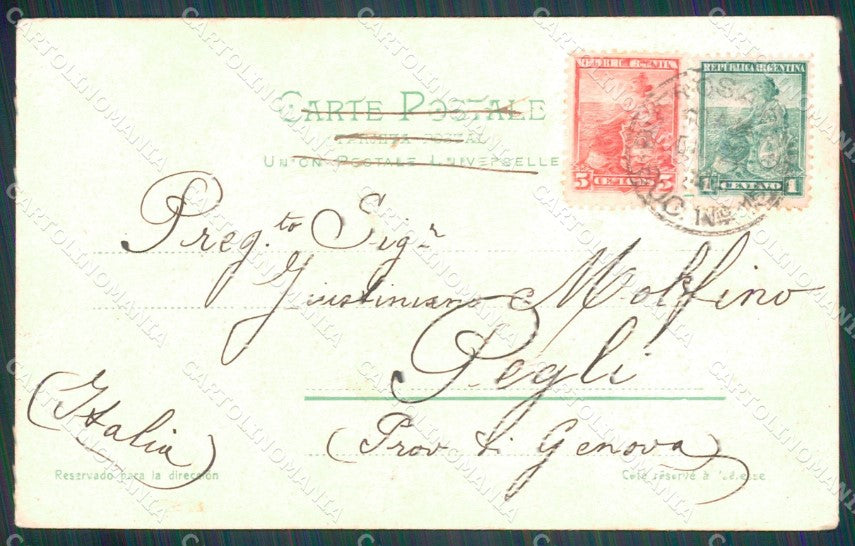 CARTE POSTALE
TARJETA POSTAL
UNION POSTALE UNIVERSELLE
REPUBLICA ARGENTINA
5 CENTAVOS 5
REPUBLICA ARGENTINA
1 CENTAVO 1
BUENOS A
SUC Nº
Preg.to Sigr
Giustiniano Molfino
Pegli
(Prov di Genova)
(Italia)
Reservado para la direccion
Coté réservé à l'adresse
CARTOLINOMANIA